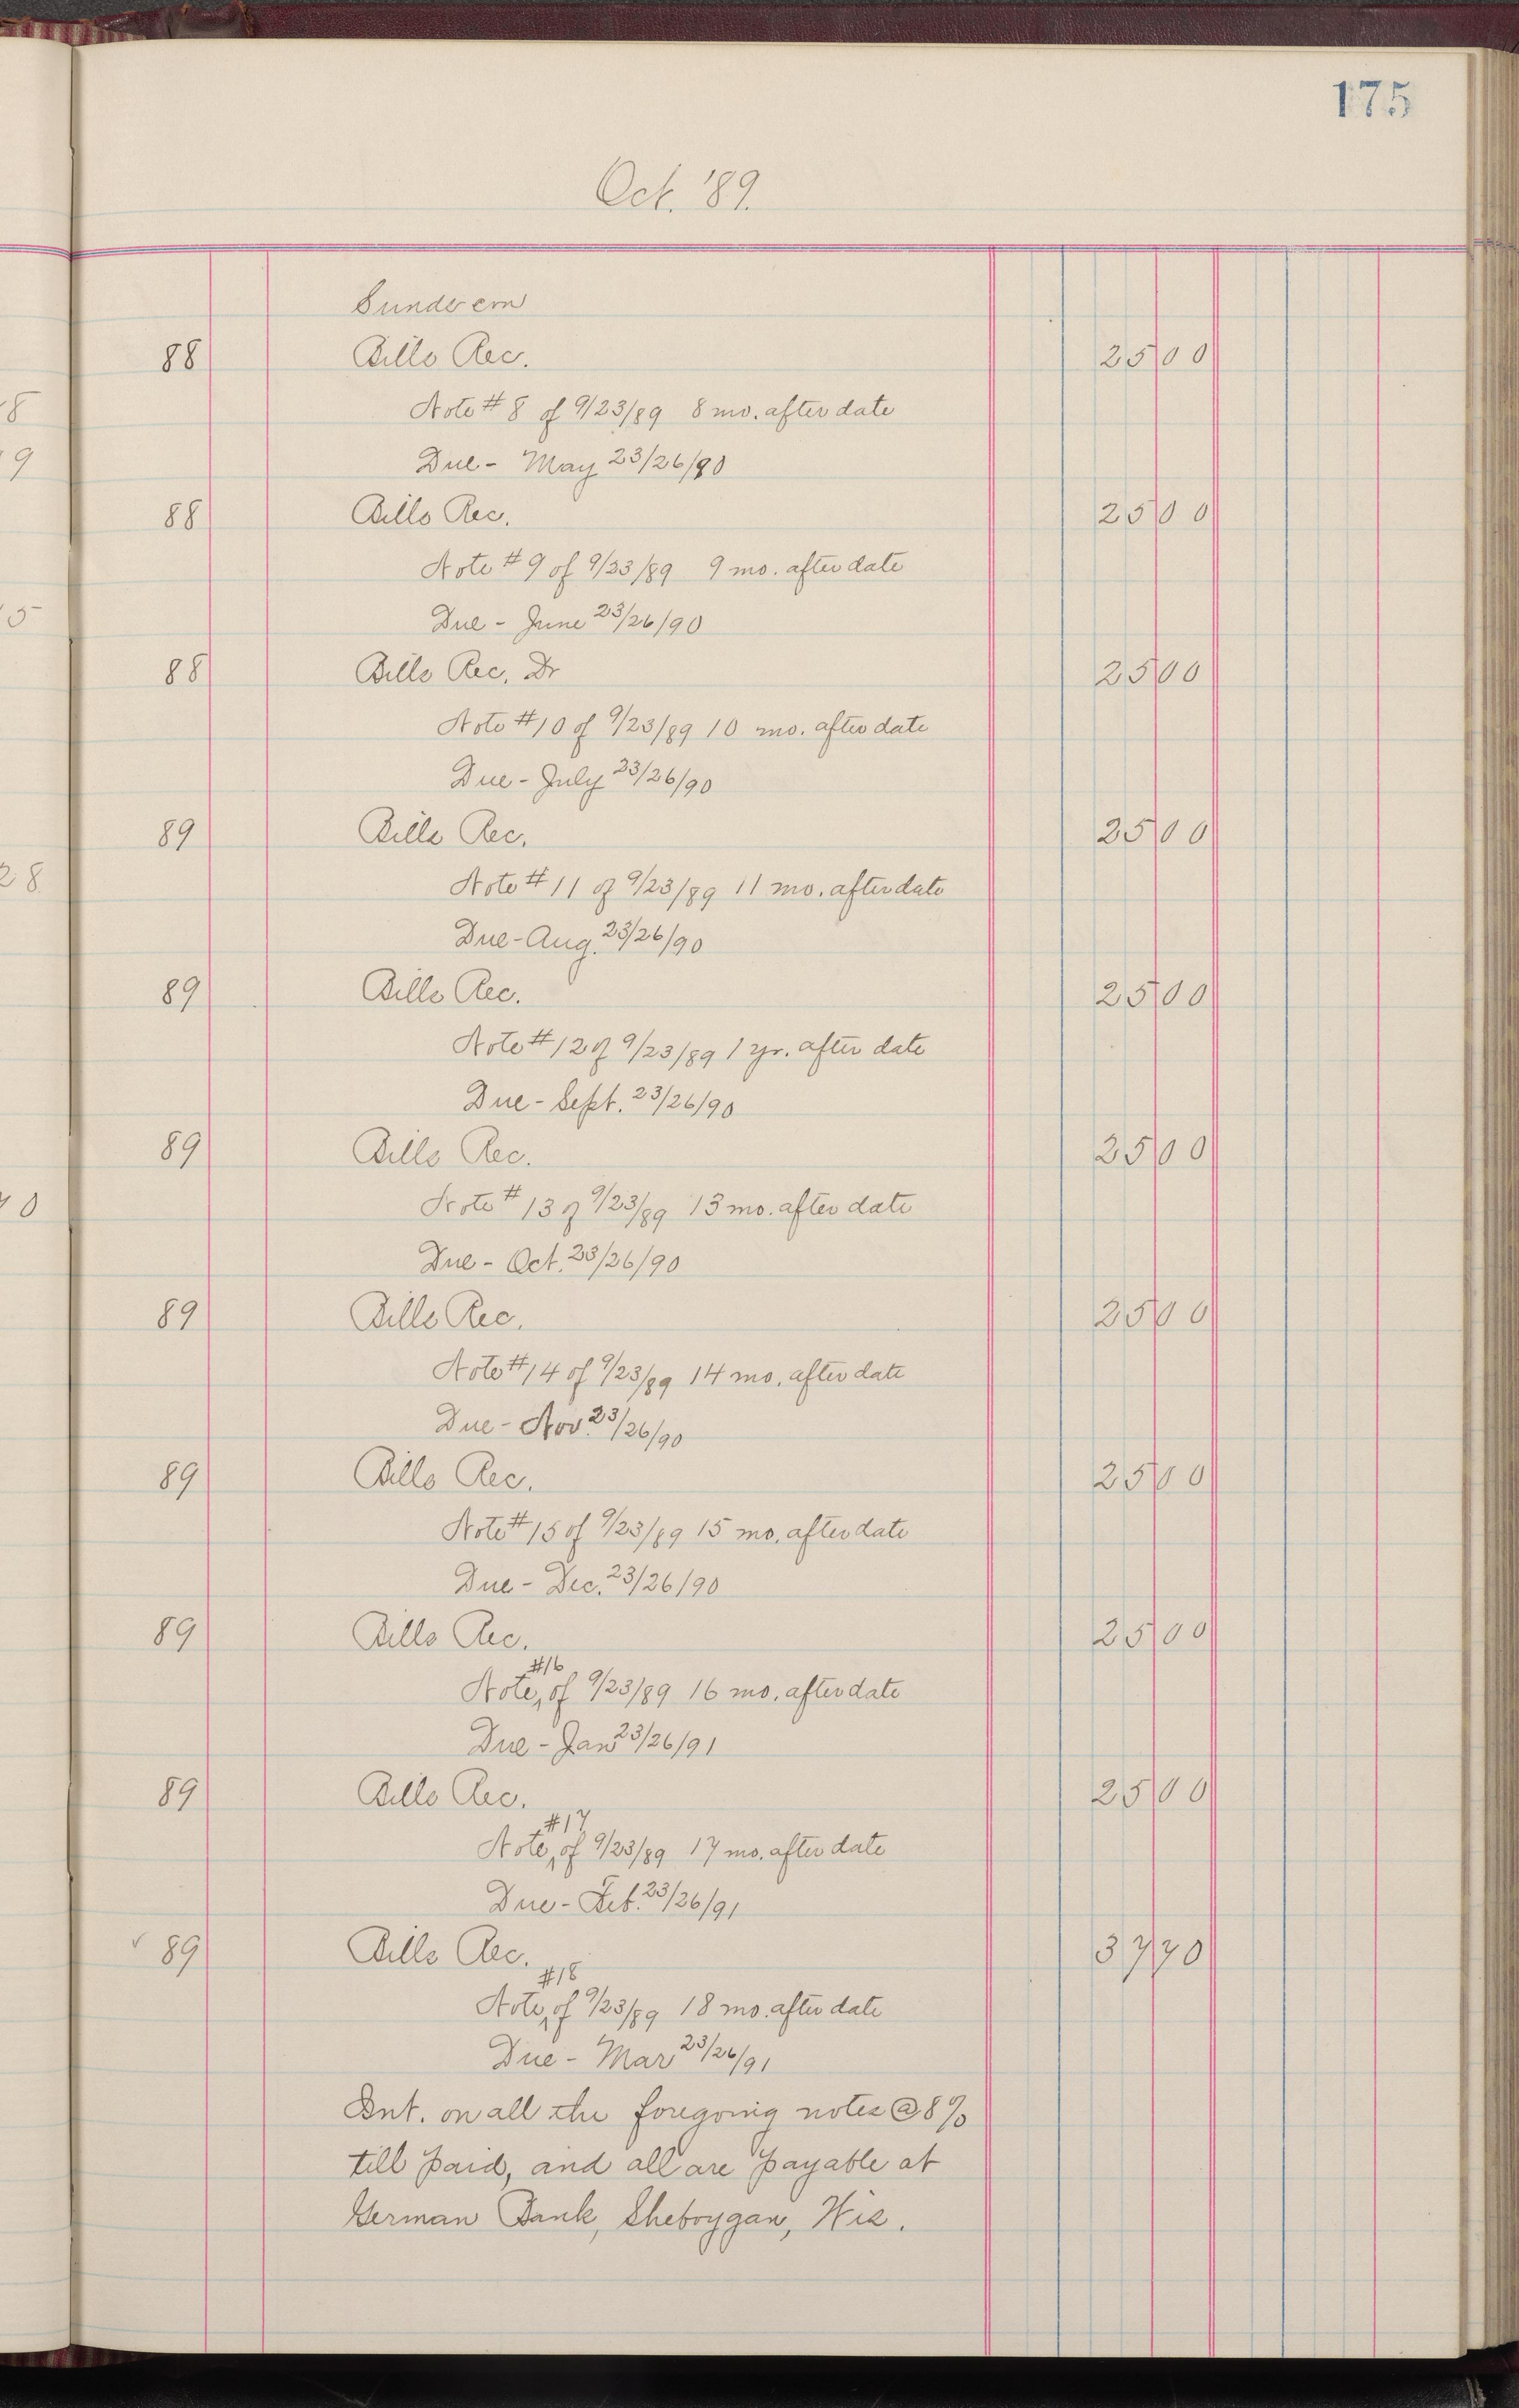 175
Oct. '89.
88 Bills Rec. 2500
Note # 8 of 9/23/89 8 mo. after date
Due - May 23/26/90
88 Bills Rec. 2500
Note # 9 of 9/23/89 9 mo. after date
Due - June 23/26/90
88 Bills Rec. Dr 2500
Note #10 of 9/23/89 10 mo. after date
Due - July 23/26/90
89 Bills Rec. 2500
Note # 11 of 9/23/89 11 mo. after date
Due - Aug. 23/26/90
89 Bills Rec. 2500
Note # 12 of 9/23/89 1 yr. after date
Due - Sept. 23/26/90
89 Bills Rec. 2500
Note # 13 of 9/23/89 13 mo. after date
Due - Oct. 23/26/90
89 Bills Rec. 2500
Note #14 of 9/23/89 14 mo. after date
Due - Nov. 23/26/90
89 Bills Rec. 2500
Note # 15 of 9/23/89 15 mo. after date
Due - Dec. 23/26/90
89 Bills Rec. 2500
Note #16 of 9/23/89 16 mo. after date
Due - Jan 23/26/91
89 Bills Rec. 2500
Note #17 of 9/23/89 17 mo. after date
Due - Feb. 23/26/91
✓ 89 Bills Rec. 3770
Note #18 of 9/23/89 18 mo. after date
Due - Mar 23/26/91
Int. on all the foregoing notes @ 8%
till paid, and all are payable at
German Bank, Sheboygan, Wis.